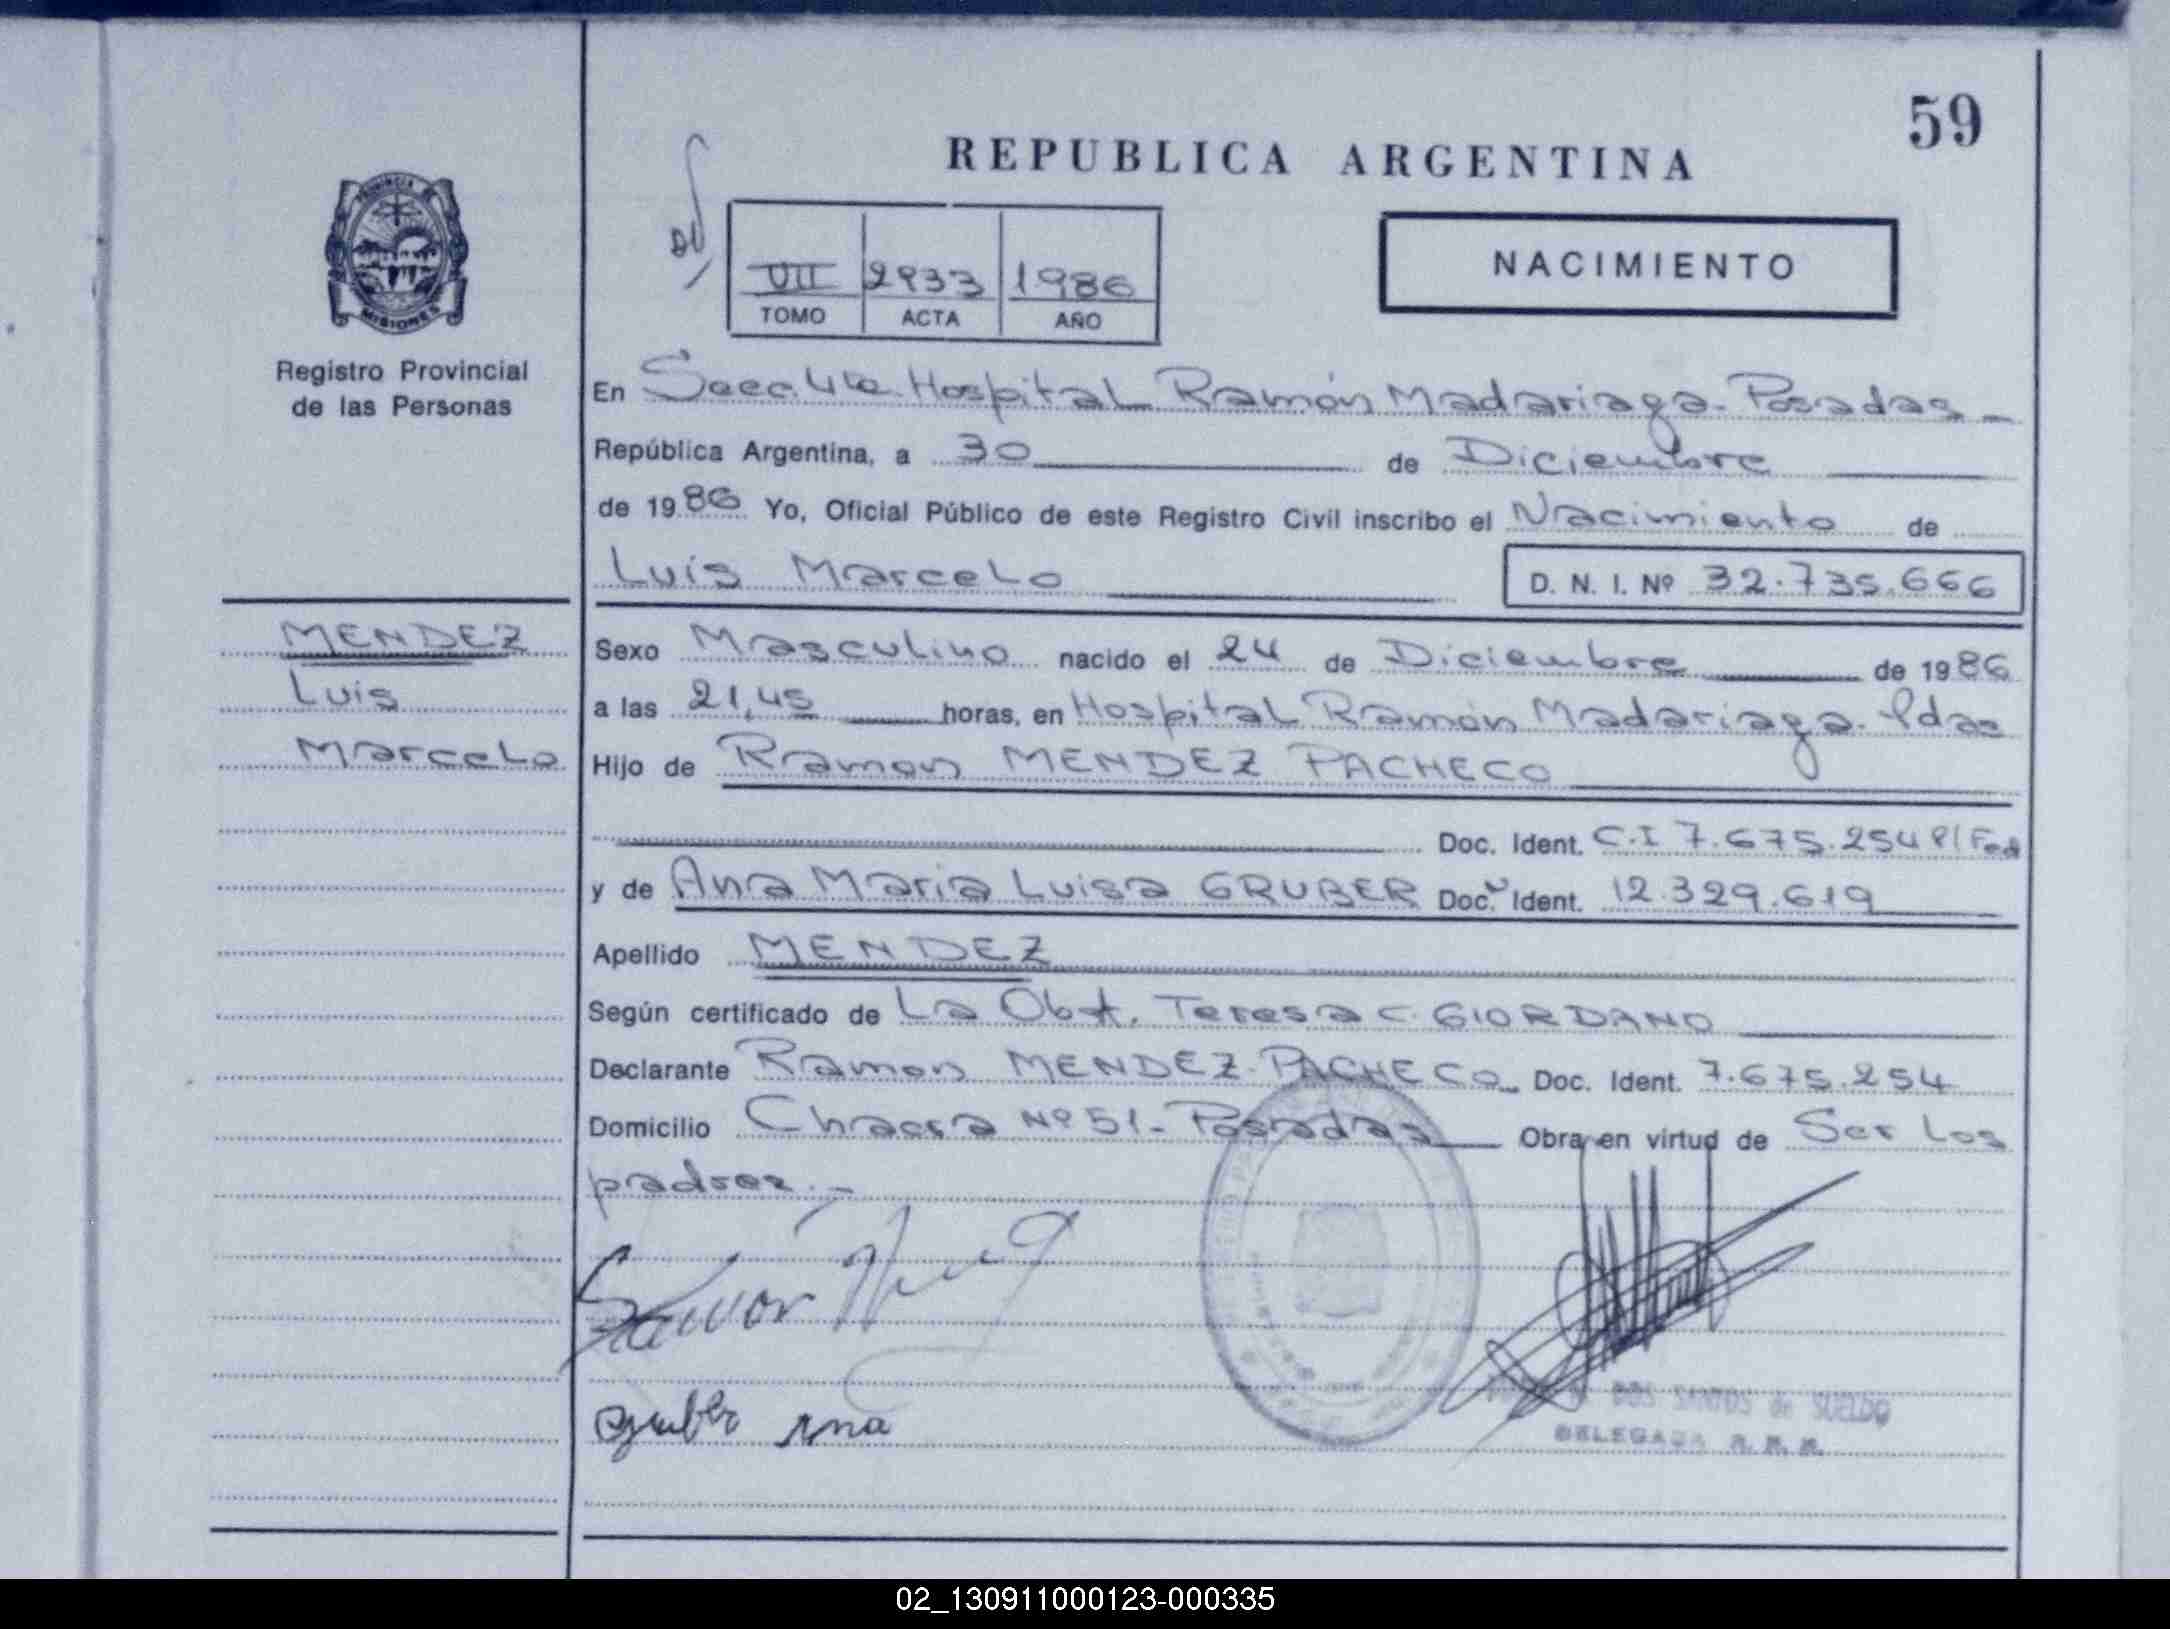 59
REPUBLICA ARGENTINA
NACIMIENTO
VII 2933 1986
TOMO ACTA AÑO
PROVINCIA DE
MISIONES
Registro Provincial
de las Personas
En Secc. 4ta. Hospital Ramón Madariaga. Posadas
República Argentina, a 30 de Diciembre
de 1986 Yo, Oficial Público de este Registro Civil inscribo el Nacimiento de
Luis Marcelo D. N. I. Nº 32.735.666
MENDEZ
Luis
Marcelo
Sexo Masculino nacido el 24 de Diciembre de 1986
a las 21,45 horas, en Hospital Ramón Madariaga. Pdas
Hijo de Ramon MENDEZ PACHECO
Doc. Ident. C.I 7.675.254 P/Fed
y de Ana Maria Luisa GRUBER Doc. Ident. 12.329.619
Apellido MENDEZ
Según certificado de La Obst. Teresa C. GIORDANO
Declarante Ramon MENDEZ PACHECO Doc. Ident. 7.675.254
Domicilio Chacra Nº 51 - Posadas Obra en virtud de Ser los
padres.-
Gruber Ana
DOS SANTOS de SUELDO
DELEGADA R. P. P.
02_130911000123-000335